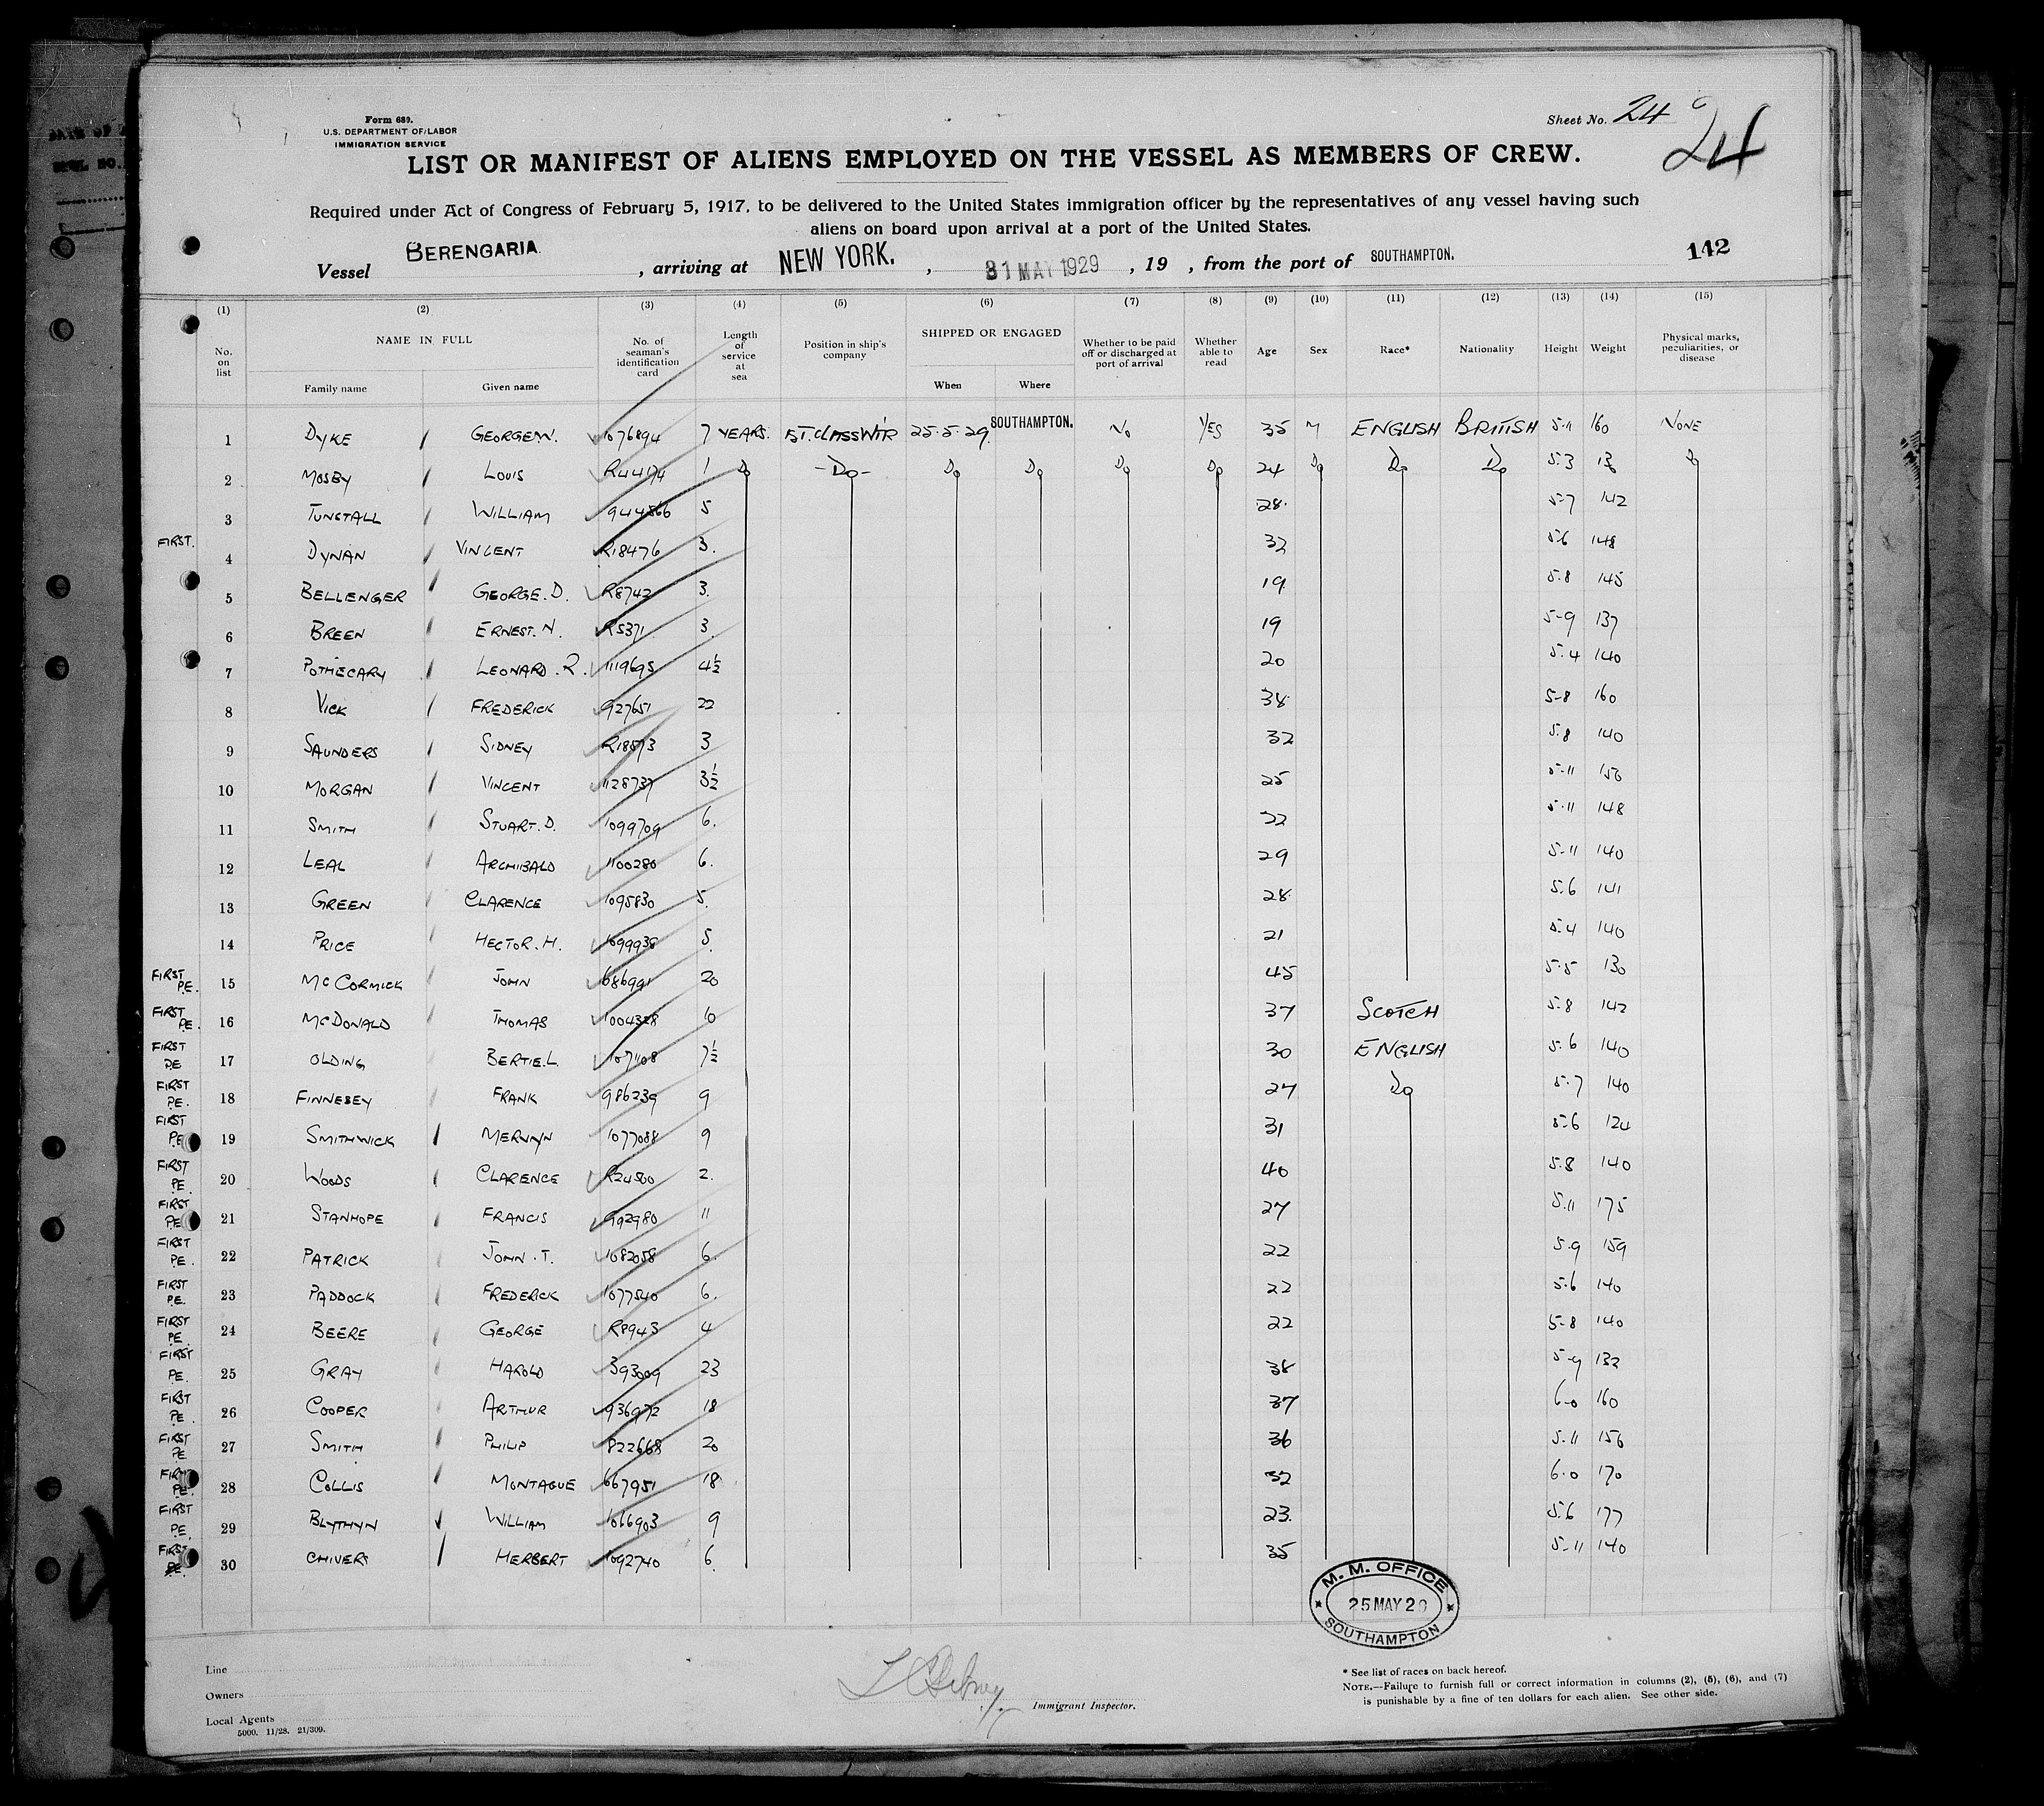 Form 689.
U.S. DEPARTMENT OF LABOR
IMMIGRATION SERVICE
Sheet No. 24
24
LIST OR MANIFEST OF ALIENS EMPLOYED ON THE VESSEL AS MEMBERS OF CREW.
Required under Act of Congress of February 5, 1917, to be delivered to the United States immigration officer by the representatives of any vessel having such
aliens on board upon arrival at a port of the United States.
Vessel BERENGARIA, arriving at NEW YORK. , 31 MAY 1929 , 19 , from the port of SOUTHAMPTON. 142
(1) (2) (3) (4) (5) (6) (7) (8) (9) (10) (11) (12) (13) (14) (15)
No. on list NAME IN FULL Family name Given name No. of seaman's identification card Length of service at sea Position in ship's company SHIPPED OR ENGAGED When Where Whether to be paid off or discharged at port of arrival Whether able to read Age Sex Race* Nationality Height Weight Physical marks, peculiarities, or disease
1 DYKE GEORGE W. 1076894 7 YEARS. 25.5.29 SOUTHAMPTON. No YES 35 M ENGLISH BRITISH 5-11 160 NONE
2 MOSBY LOUIS R44174 1 Do -Do- Do Do Do Do 24 Do Do Do 5.3 Do
3 TUNSTALL WILLIAM 944566 5 28. 5-7 142
FIRST. 4 DYNAN VINCENT R18476 3. 32 5-6 148
5 BELLENGER GEORGE.D. R8742 3. 19 5.8 145
6 BREEN ERNEST.N. R5371 3. 19 5-9 137
7 POTHECARY LEONARD.R. 1119695 4½ 20 5.4 140
8 VICK FREDERICK 927651 22 38 5-8 160
9 SAUNDERS SIDNEY R18573 3 32 5.8 140
10 MORGAN VINCENT 1128737 3½ 25 5-11 156
11 SMITH STUART.D. 1099709 6. 22 5.11 148
12 LEAL ARCHIBALD 1100280 6. 29 5-11 140
13 GREEN CLARENCE 1095830 5. 28. 5.6 141
14 PRICE HECTOR.H. 1099938 5. 21 5.4 140
FIRST P.E. 15 McCORMICK JOHN 686991 20 45 5-5 130
FIRST P.E. 16 McDONALD THOMAS 1004328 10 37 SCOTCH 5.8 142
FIRST P.E 17 OLDING BERTIE.L. 1071108 7½ 30 ENGLISH 5.6 140
FIRST P.E. 18 FINNESEY FRANK 986239 9 27 Do 5.7 140
FIRST P.E 19 SMITHWICK MERVYN 1077088 9 31 5-6 124
FIRST P.E 20 WOODS CLARENCE R24500 2. 40 5.8 140
FIRST P.E 21 STANHOPE FRANCIS 992980 11 27 5.11 175
FIRST P.E. 22 PATRICK JOHN.T. 1082058 6. 22 5.9 159
FIRST P.E. 23 PADDOCK FREDERICK 1077540 6. 22 5.6 140
FIRST P.E 24 BEERE GEORGE R8943 4 22 5-8 140
FIRST P.E. 25 GRAY HAROLD 393009 23 38 5-9 132
FIRST P.E. 26 COOPER ARTHUR 936972 18 37 6-0 160
FIRST P.E 27 SMITH PHILIP 822668 20 36 5.11 156
FIRST P.E. 28 COLLIS MONTAGUE 667951 18 32 6.0 170
FIRST P.E. 29 BLYTHYN WILLIAM 1066903 9 23. 5.6 177
FIRST P.E. 30 CHIVERS HERBERT 1092740 6. 35 5-11 140
M. M. OFFICE
25 MAY 29
SOUTHAMPTON
Line
Owners
Local Agents
5000. 11/28. 21/309.
Immigrant Inspector.
* See list of races on back hereof.
NOTE.—Failure to furnish full or correct information in columns (2), (5), (6), and (7)
is punishable by a fine of ten dollars for each alien. See other side.